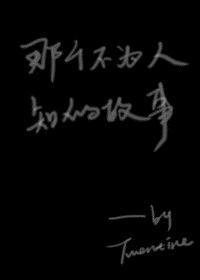 那个不为人
知的故事
—by
Twentine